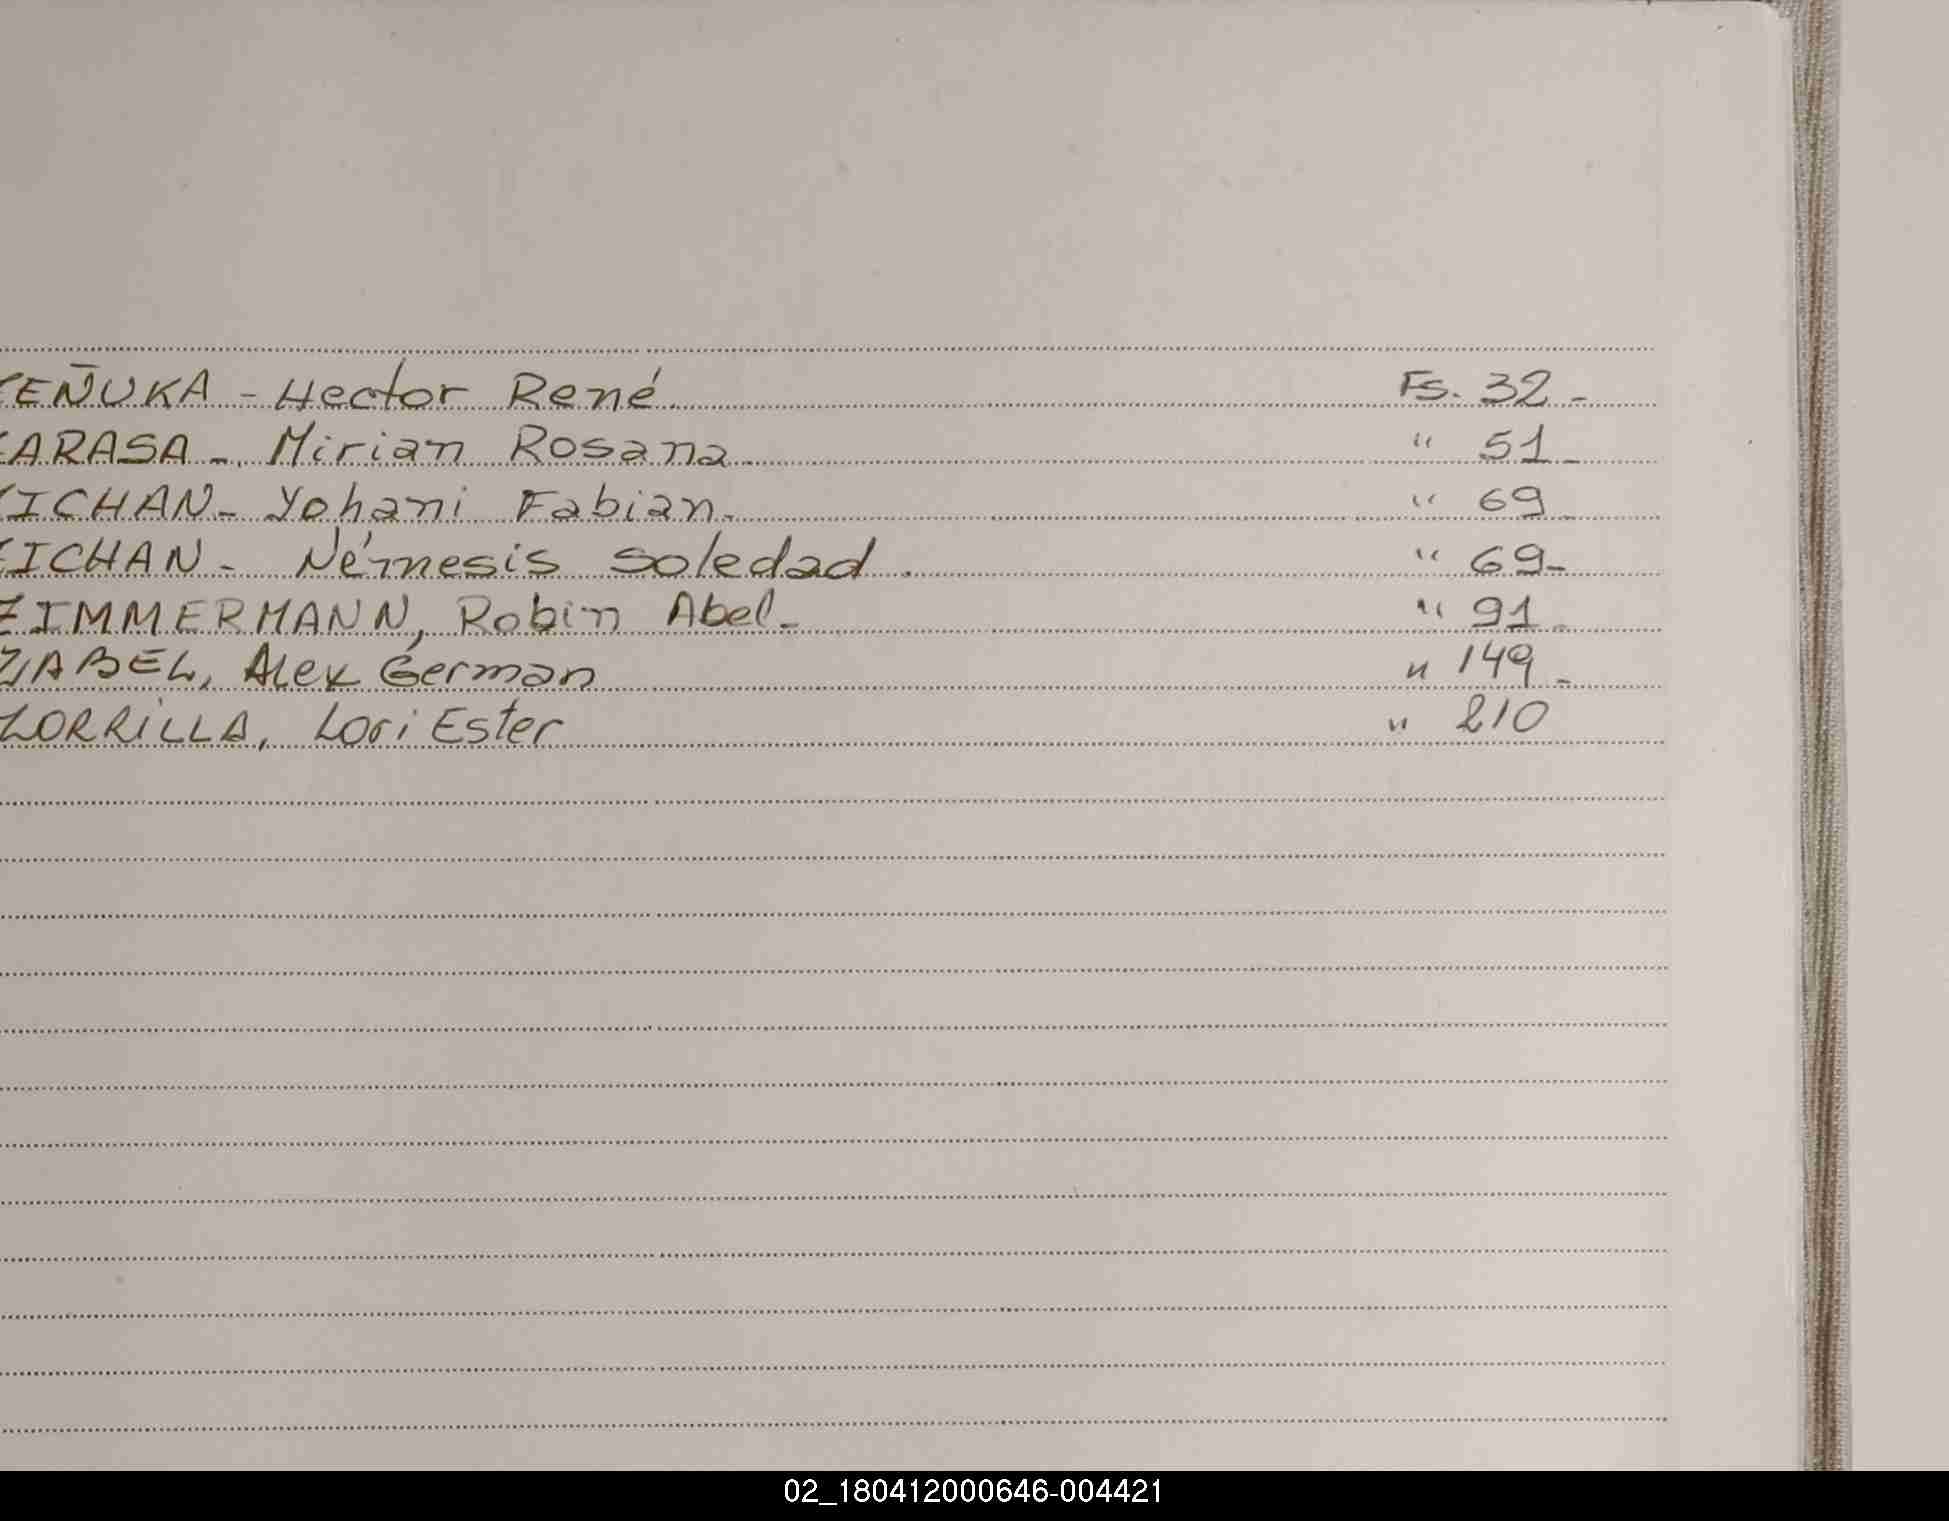 ZEÑUKA - Hector René. Fs. 32 -
ZARASA - Mirian Rosana " 51 -
ZICHAN - Yohani Fabian. " 69 -
ZICHAN - Némesis Soledad. " 69 -
ZIMMERMANN, Robin Abel - " 91 -
ZABEL, Alex German " 149 -
ZORRILLA, Lori Ester " 210
02_180412000646-004421